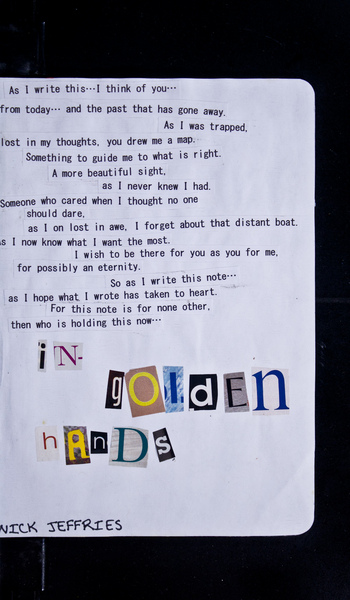 As I write this…I think of you…
from today… and the past that has gone away.
As I was trapped,
lost in my thoughts, you drew me a map.
Something to guide me to what is right.
A more beautiful sight,
as I never knew I had.
Someone who cared when I thought no one
should dare,
as I on lost in awe, I forget about that distant boat.
As I now know what I want the most.
I wish to be there for you as you for me,
for possibly an eternity.
So as I write this note…
as I hope what I wrote has taken to heart.
For this note is for none other,
then who is holding this now…
iN-
gOLdEn
hAnDs
NICK JEFFRIES